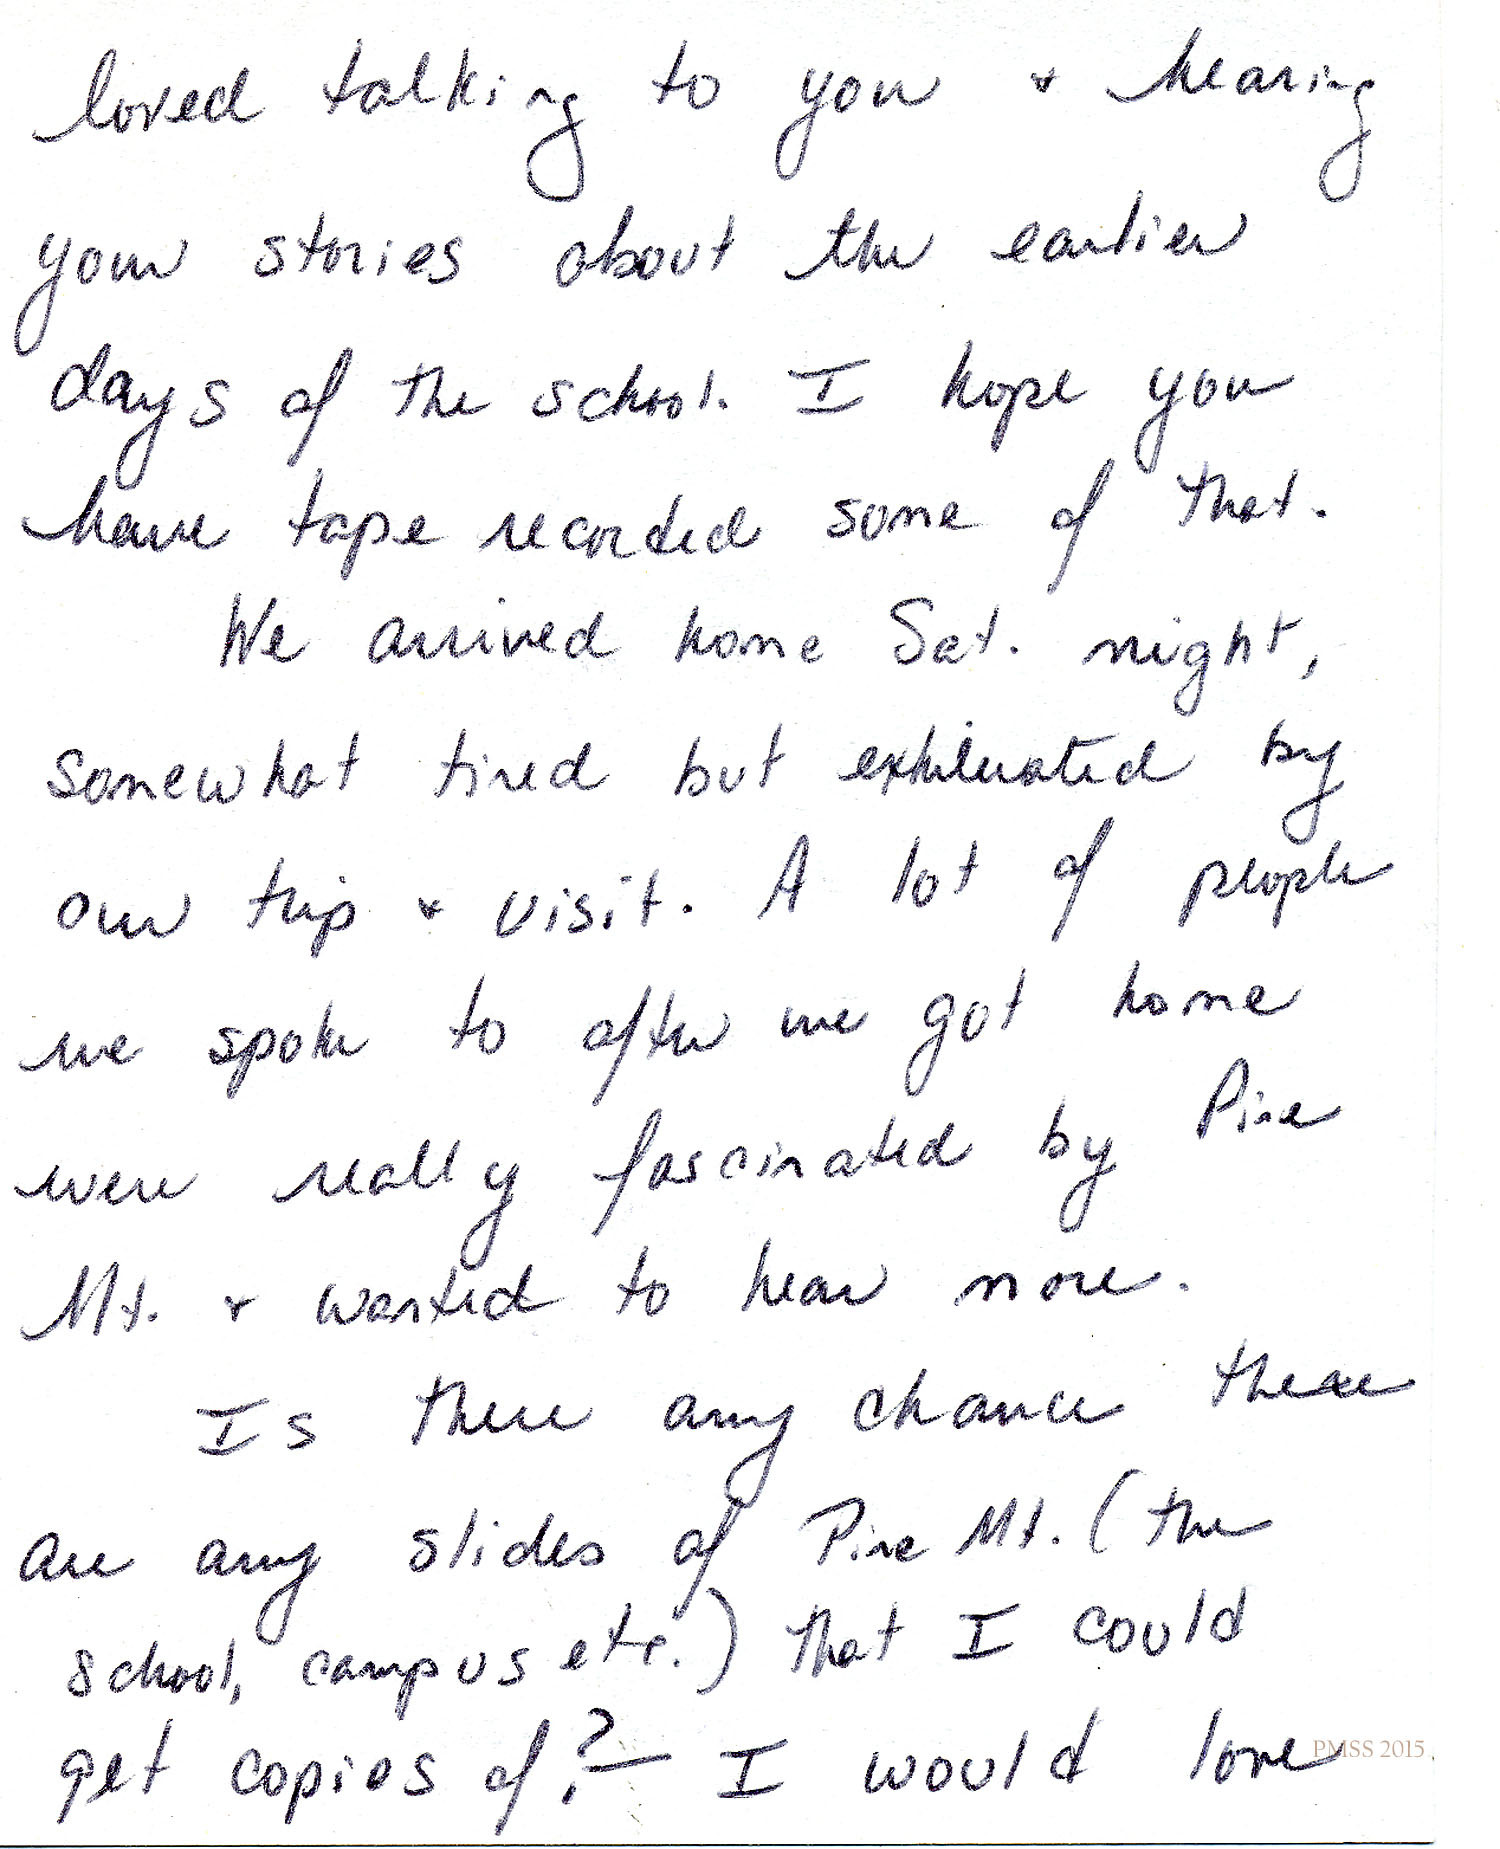 loved talking to you + hearing
your stories about the earlier
days of the school. I hope you
have tape recorded some of that.
We arrived home Sat. night,
somewhat tired but exhilerated by
our trip + visit. A lot of people
we spoke to after we got home
were really fascinated by Pine
Mt. + wanted to hear more.
Is there any chance there
are any slides of Pine Mt. (the
school, campus etc.) that I could
get copies of? — I would love
PMSS 2015